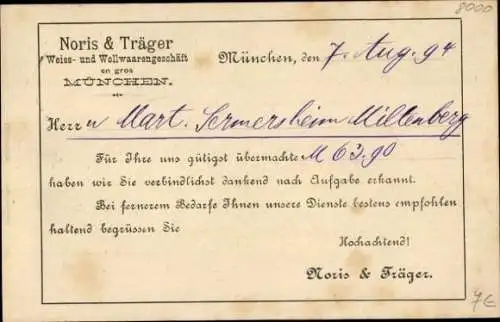 8000
Noris & Träger
Weiss- und Wollwaarengeschäft
en gros
MÜNCHEN.
München, den 7. Aug. 94
Herr n Mart. Sermersheim Miltenberg
Für Ihre uns gütigst übermachte M 63.90
haben wir Sie verbindlichst dankend nach Aufgabe erkannt.
Bei fernerem Bedarfe Ihnen unsere Dienste bestens empfohlen
haltend begrüssen Sie
Hochachtend!
Noris & Träger.
7€